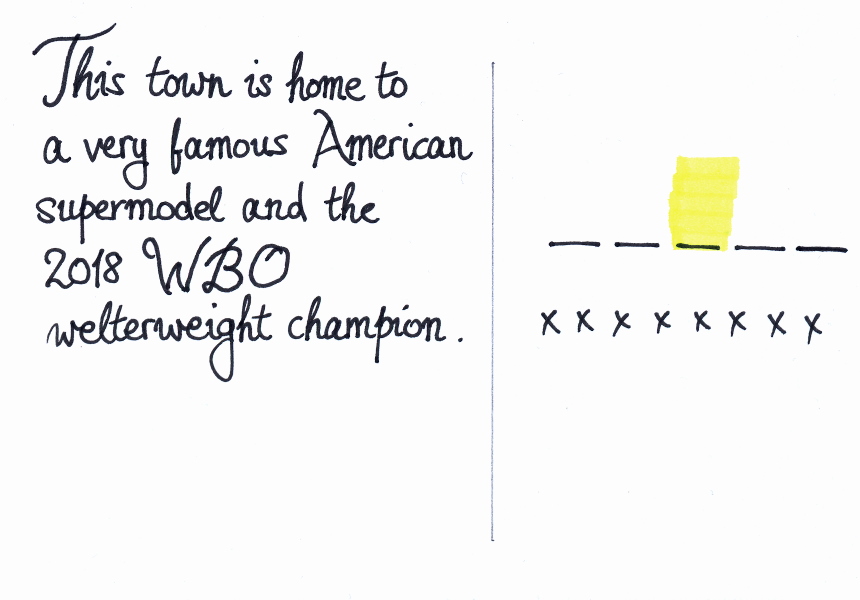 This town is home to
a very famous American
supermodel and the
2018 WBO
welterweight champion.
x x x x x x x x